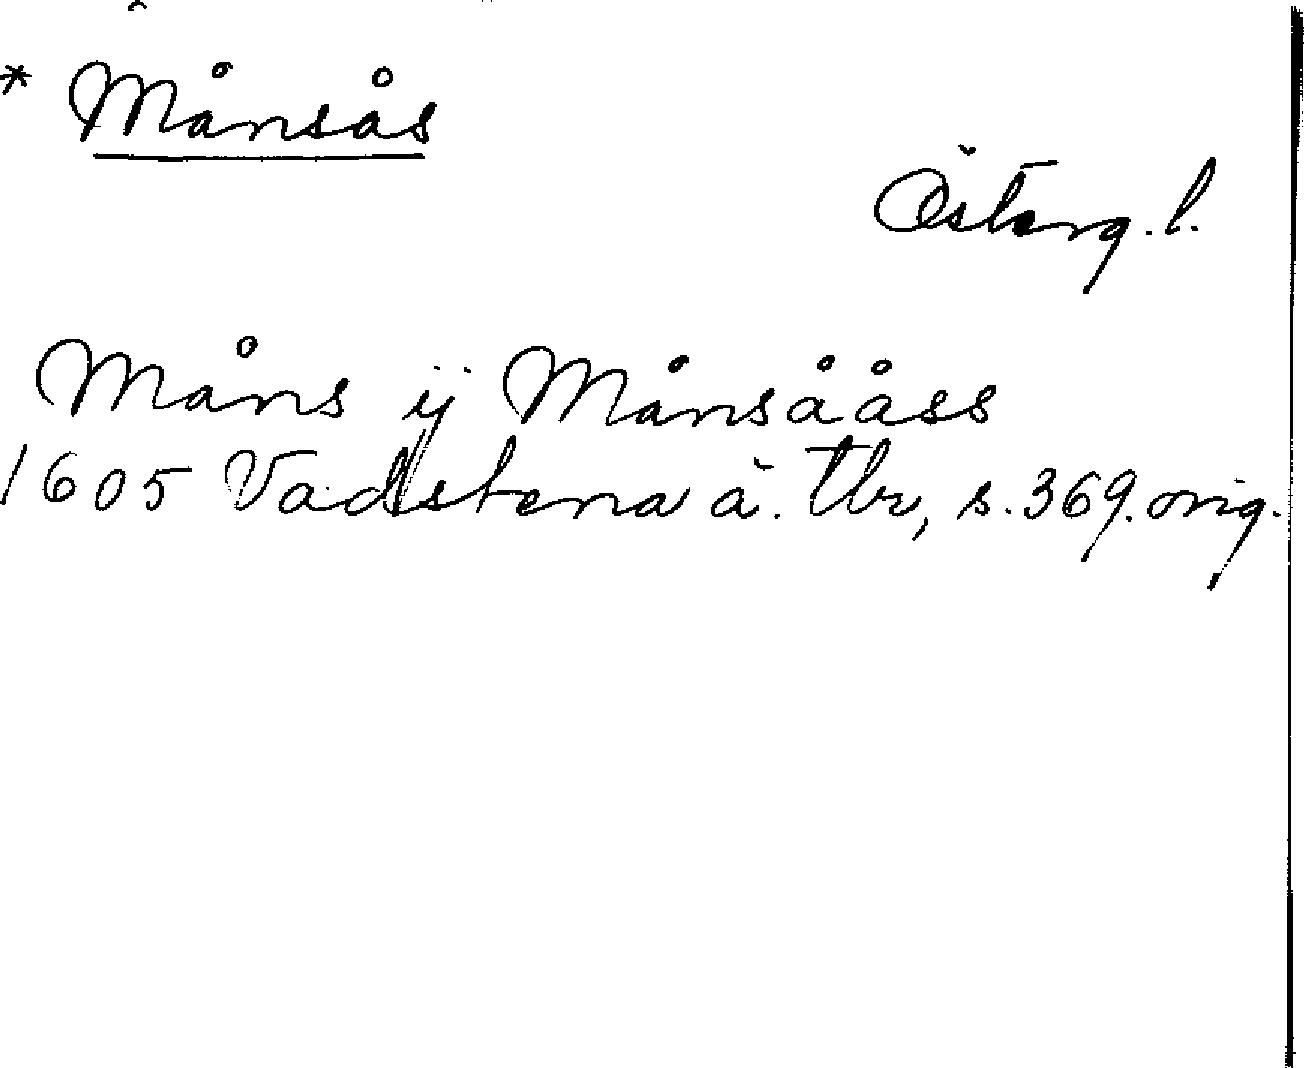 * Månsås
Österg. l.
Måns ÿ Månsååss
1605 Vadstena ä. tbr, s. 369. orig.